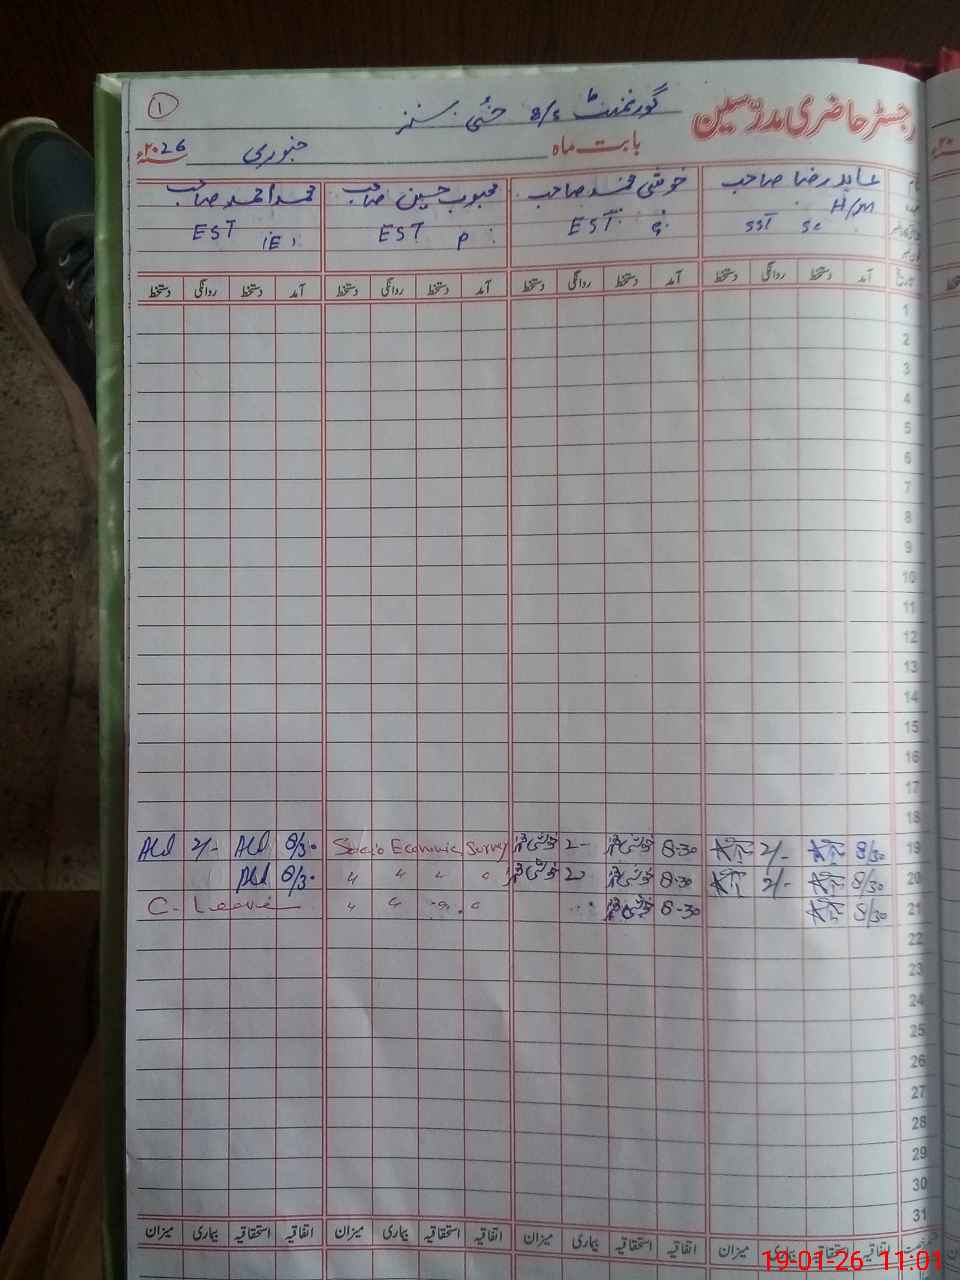 رجسٹر حاضری مدرسین گورنمنٹ
۱
بابت ماہ جنوری ۲۰26ء
عابد رضا صاحب خوشی محمد صاحب محبوب حسین صاحب محمد احمد صاحب
H/M
SST Sc EST EST P EST
تاریخ آمد دستخط روانگی دستخط آمد دستخط روانگی دستخط آمد دستخط روانگی دستخط آمد دستخط روانگی دستخط
1
2
3
4
5
6
7
8
9
10
11
12
13
14
15
16
17
18
19 8/30 2/- 8-30 2- Socio Economic Survey 8/30 2/-
20 8/30 2/- 8-30 8/30
21 8/30 8-30 C. Leave
22
23
24
25
26
27
28
29
30
31
اتفاقیہ استحقاقیہ بیماری میزان اتفاقیہ استحقاقیہ بیماری میزان اتفاقیہ استحقاقیہ بیماری میزان اتفاقیہ استحقاقیہ بیماری میزان
19-01-26 11:01